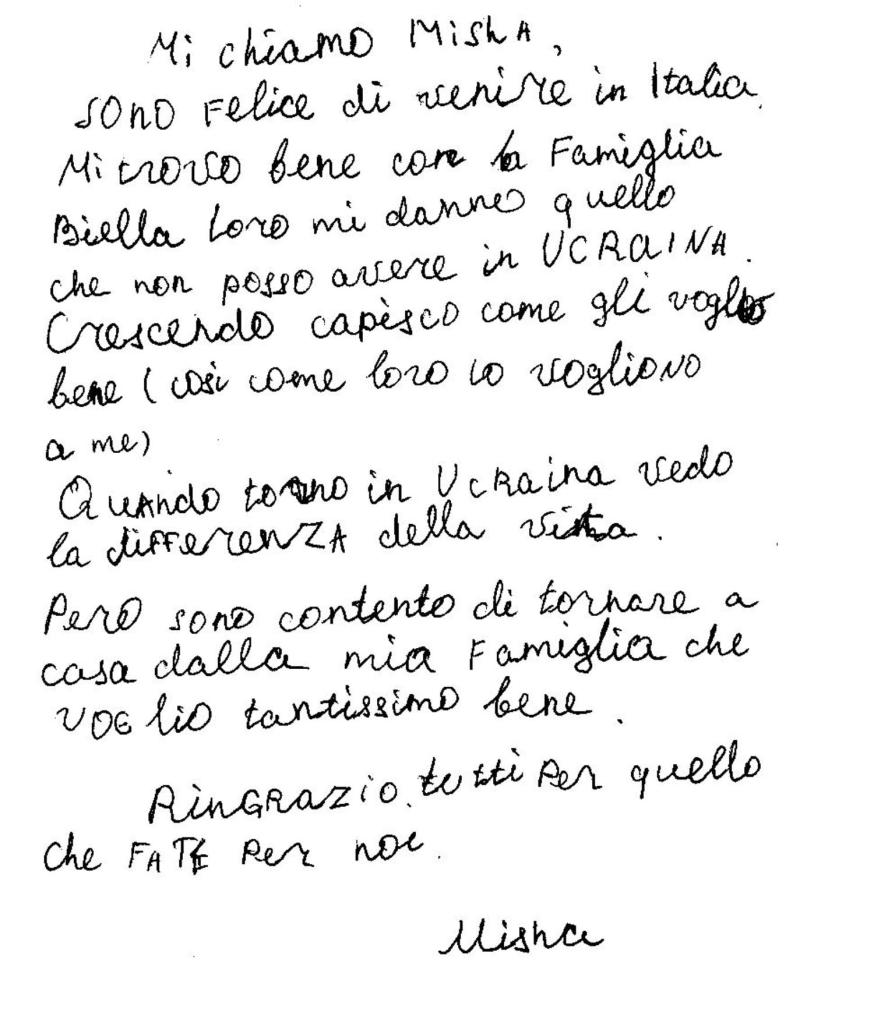 Mi chiamo Misha,
sono felice di venire in Italia.
Mi trovo bene con la Famiglia
Biella loro mi danno quello
che non posso avere in UCRAINA.
Crescendo capisco come gli voglio
bene (così come loro lo vogliono
a me)
Quando torno in Ucraina vedo
la differenza della vita.
Però sono contento di tornare a
casa dalla mia Famiglia che
voglio tantissimo bene.
Ringrazio tutti per quello
che FATE per noi.
Misha